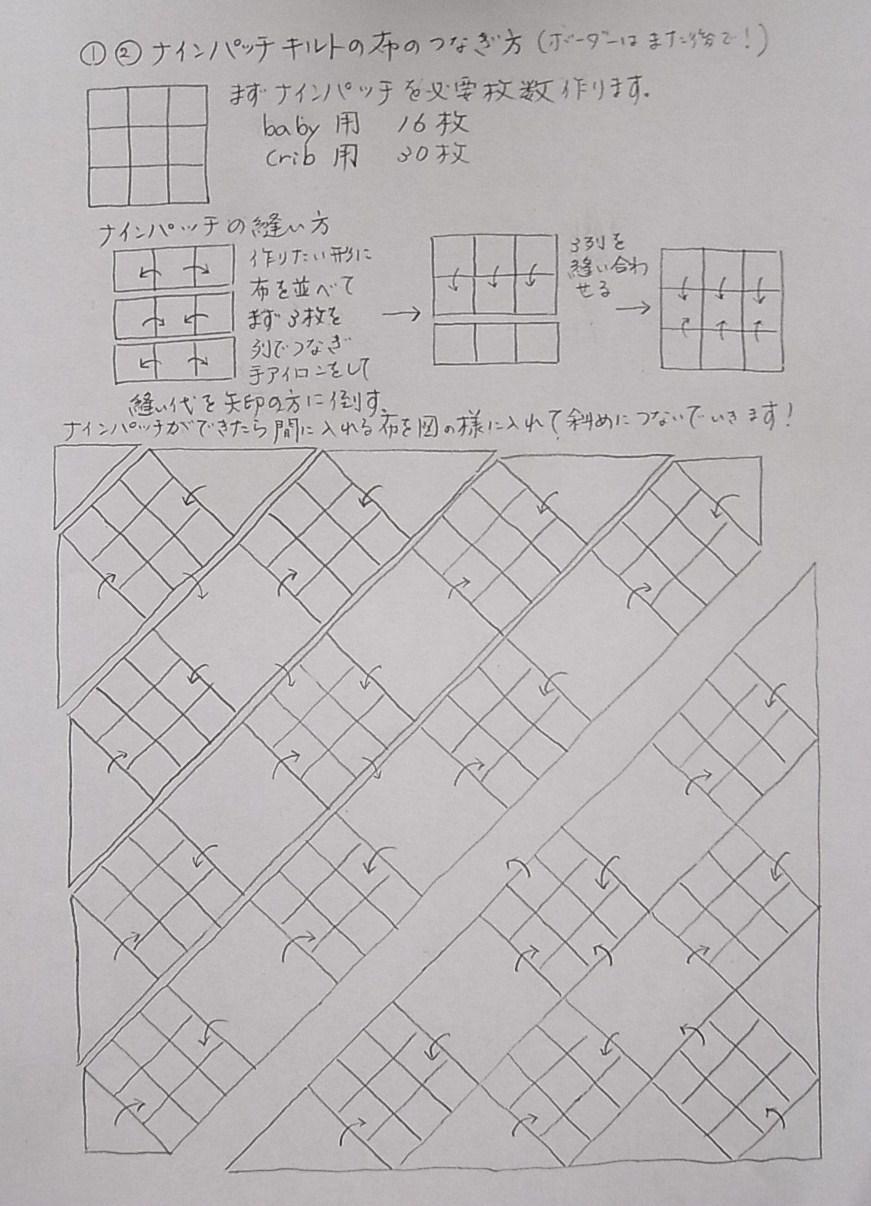 ①②ナインパッチキルトの布のつなぎ方(ボーダーはまた後で!)
まずナインパッチを必要枚数作ります。
baby用 16枚
crib用 30枚
ナインパッチの縫い方
作りたい形に
布を並べて
まず3枚を
列でつなぎ
手アイロンをして
縫い代を矢印の方に倒す。
3列を
縫い合わ
せる
ナインパッチができたら間に入れる布を図の様に入れて斜めにつないでいきます!